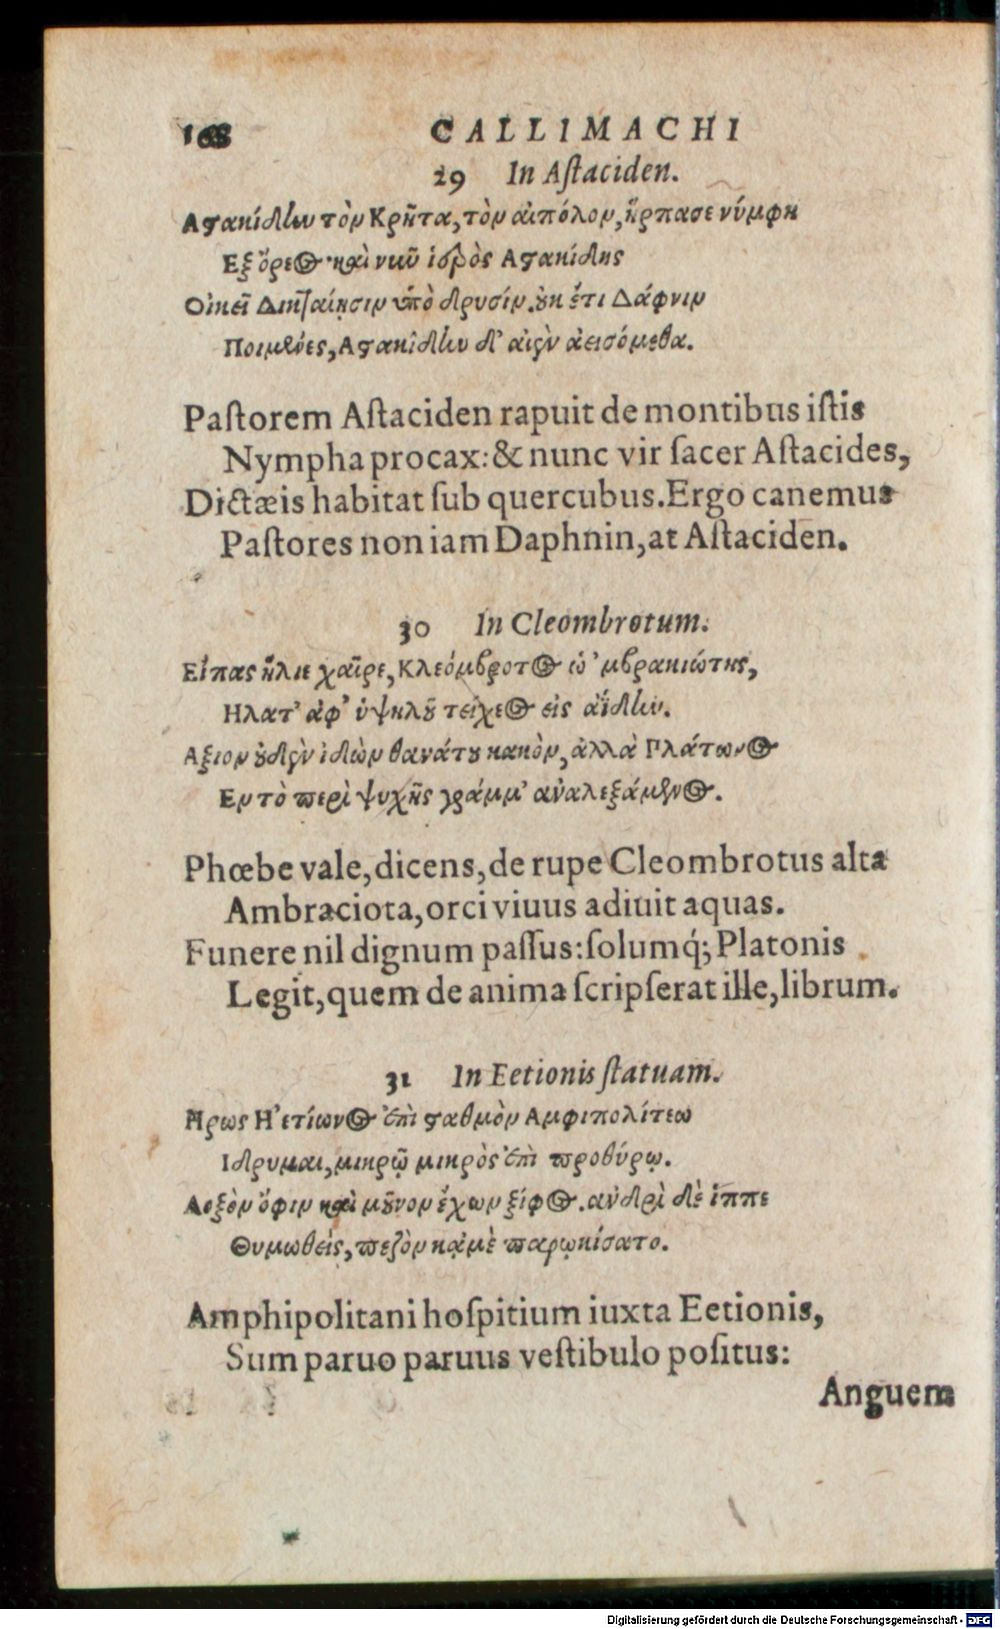 168 CALLIMACHI
29 In Aſtaciden.
Αϛακίδlω τὸν Κρῆτα, τὸν αἰπόλον, ἥρπασε νύμφη
Εξ ὄρεος· καὶ νιῦ ἱερὸς Αϛακίδης
Οἰκεῖ Δικταίησιν ὑπὸ δρυσίν. ȣκ ἔτι Δάφνιν
Ποιμένες, Αϛακίδlω δ' αἰὲν ἀεισόμεθα.
Paſtorem Aſtaciden rapuit de montibus iſtis
Nympha procax: & nunc vir ſacer Aſtacides,
Dictæis habitat ſub quercubus. Ergo canemus
Paſtores non iam Daphnin, at Aſtaciden.
30 In Cleombrotum.
Εἴπας ἥλιε χαῖρε, Κλεόμβροτος ὡ 'μβρακιώτης,
Ηλατ' ἀφ' ὑψηλȣ͂ τείχεος εἰς ἀΐδlω.
Αξιον ȣ̓δὲν ἰδὼν θανάτȣ κακὸν, ἀλλὰ Πλάτωνος
Εν τὸ περὶ ψυχῆς γράμμ' ἀναλεξάμενος.
Phœbe vale, dicens, de rupe Cleombrotus alta
Ambraciota, orci viuus adiuit aquas.
Funere nil dignum paſſus: ſolumq́; Platonis
Legit, quem de anima ſcripſerat ille, librum.
31 In Eetionis ſtatuam.
Ηρως Η'ετίωνος ἐπὶ ϛαθμὸν Αμφιπολίτεω
Ιδρυμαι, μικρῷ μικρὸς ἐπὶ προθύρῳ.
Λοξὸν ὄφιν καὶ μȣ͂νον ἔχων ξίφος. ἀνδρὶ δὲ ἱππε
Θυμωθεὶς, πεζὸν κᾀμὲ παρῳκίσατο.
Amphipolitani hoſpitium iuxta Eetionis,
Sum paruo paruus veſtibulo poſitus:
Anguem
Digitalisierung gefördert durch die Deutsche Forschungsgemeinschaft - DFG